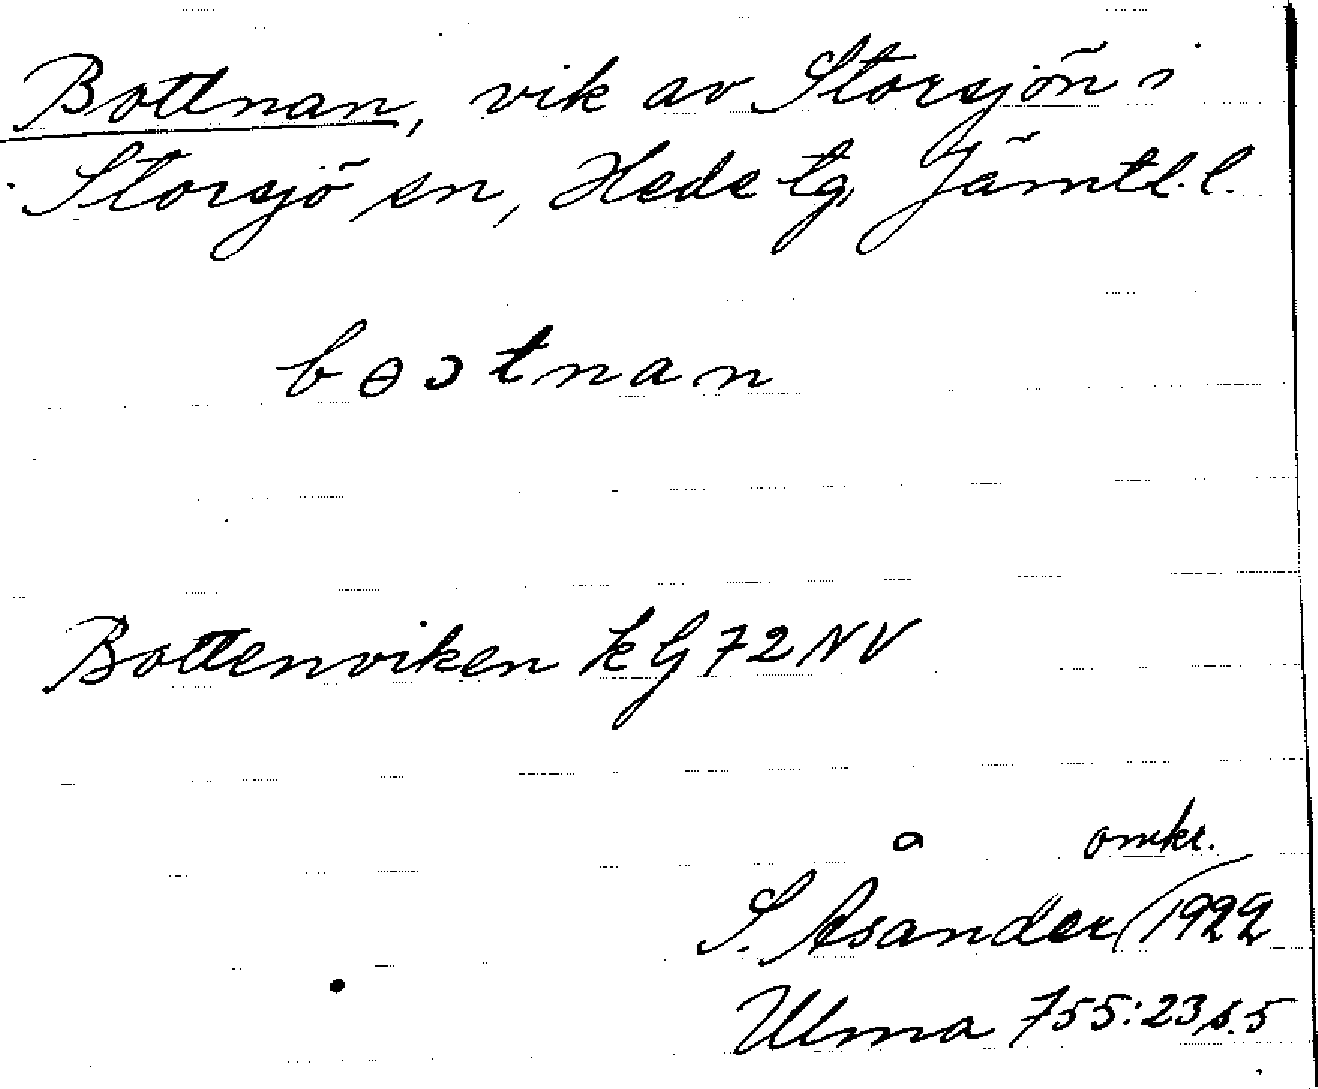 Bottnan, vik av Storsjön i
Storsjö sn, Hede tg Jämtl. l.
bɵɔtnan
Bottenviken kG 72 NV
omkr.
S. Åsander/1922
Ulma 755:23 s. 5